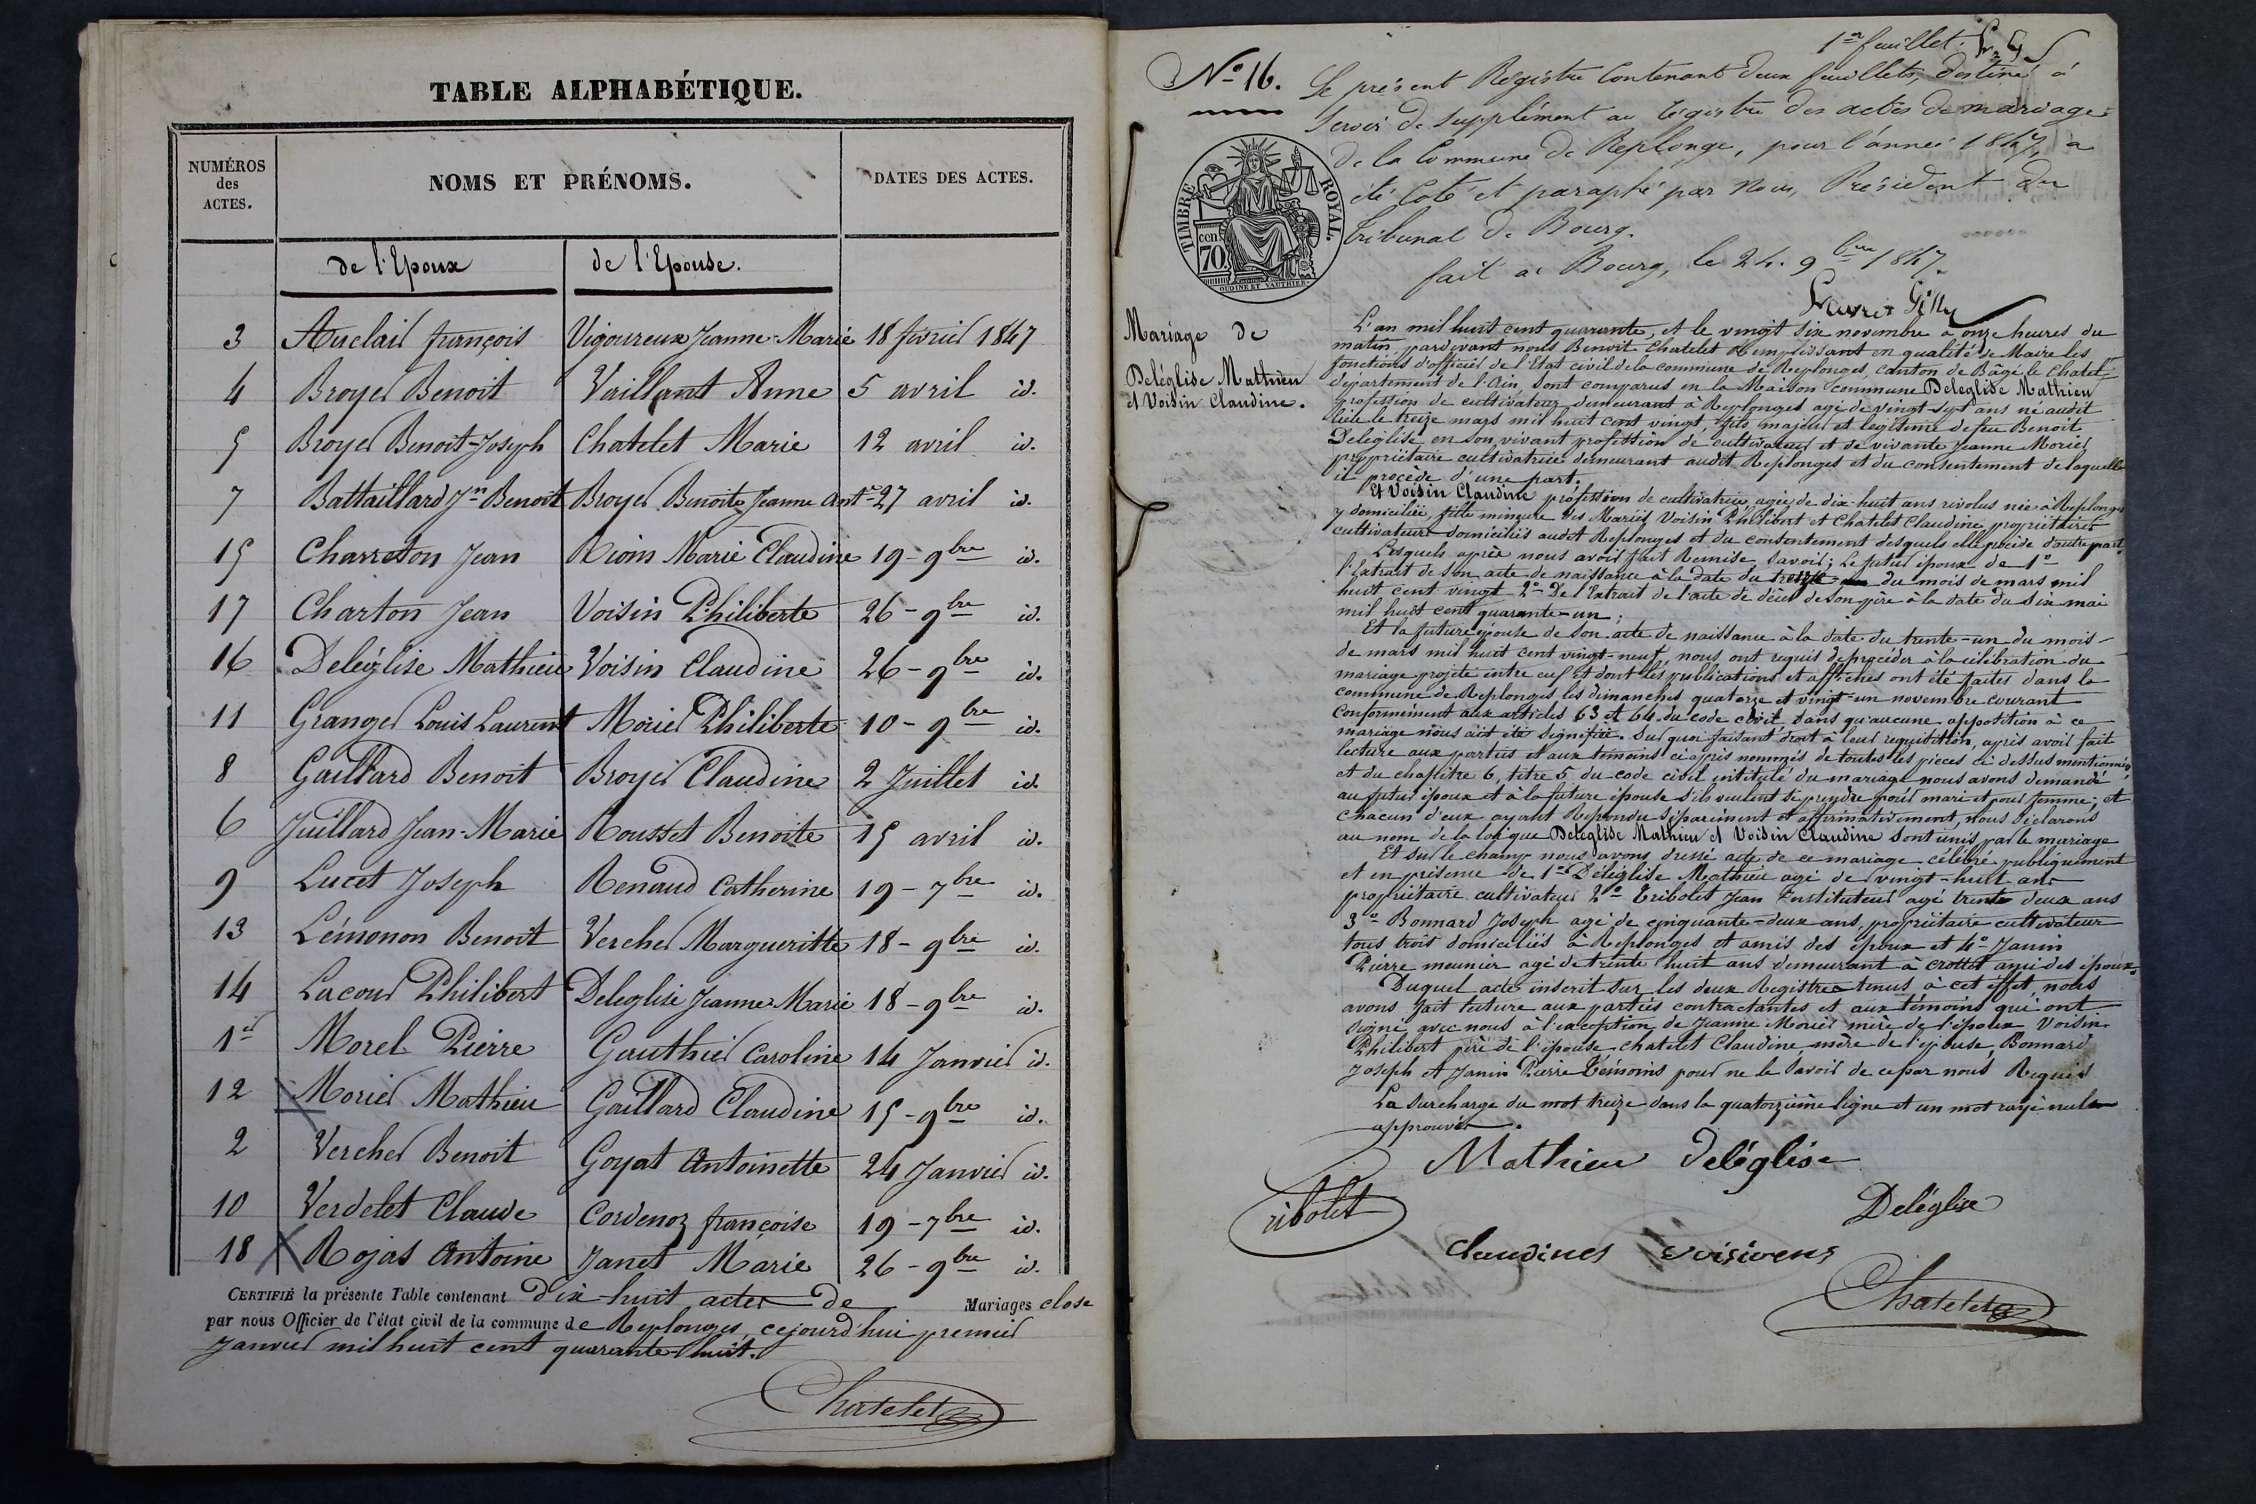 TABLE ALPHABÉTIQUE.
NUMÉROS des ACTES. NOMS ET PRÉNOMS. DATES DES ACTES.
de l'Epoux de l'Epouse.
3 Auclair françois Vigoureux Jeanne-Marie 18 février 1847
4 Broyer Benoit Vaillant Anne 5 avril id.
5 Broyer Benoit-Joseph Chatelet Marie 12 avril id.
7 Battaillard Jn Benoit Broyer Benoite Jeanne Antte 27 avril id.
15 Charreton Jean Rion Marie Claudine 19 - 9bre id.
17 Charton Jean Voisin Philiberte 26 - 9bre id.
16 Deléglise Mathieu Voisin Claudine 26 - 9bre id.
11 Granger Louis Laurent Morier Philiberte 10 - 9bre id.
8 Gaillard Benoit Broyer Claudine 2 Juillet id.
6 Juillard Jean-Marie Rousset Benoite 15 avril id.
9 Lucet Joseph Renaud Catherine 19 - 7bre id.
13 Lémonon Benoit Vercher Margueritte 18 - 9bre id.
14 Lacour Philibert Deleglise Jeanne Marie 18 - 9bre id.
1er Morel Pierre Gauthier Caroline 14 Janvier id.
12 Morier Mathieu Gaillard Claudine 15 - 9bre id.
2 Vercher Benoit Goyat Antoinette 24 Janvier id.
10 Verdelet Claude Cordenoz françoise 19 - 7bre id.
18 Rojas Antoine Janet Marie 26 - 9bre id.
CERTIFIÉ la présente Table contenant Dix-huit actes de Mariages close
par nous Officier de l'état civil de la commune de Replonges, cejourd'hui premier
Janvier mil huit cent quarante-huit.
Chatelet
1er feuillet.
No 16. Le présent Registre Contenant deux feuillets, destiné à
Servir de supplément au registre des actes de mariage
de la Commune de Replonge, pour l'année 1847, a
été Coté et paraphé par Nous, Président du
tribunal de Bourg.
fait à Bourg, le 24. 9bre 1847.
TIMBRE ROYAL.
70 cen
OUDINE ET VAUTHIER
Mariage de
Deléglise Mathieu
et Voisin Claudine.
L'an mil huit cent quarante, et le vingt six novembre à onze heures du
matin pardevant nous Benoit Chatelet Remplissant en qualité de Maire les
fonctions d'officier de l'Etat civil de la commune de Replonges, canton de Bâgé le Chatel
département de l'Ain, Sont comparus en la Maison commune Deleglise Mathieu
profession de cultivateur demeurant à Replonges agé de vingt-sept ans né audit
lieu le treize mars mil huit cent vingt, fils majeur et légitime de feu Benoit
Deléglise en son vivant profession de cultivateur et de vivante Jeanne Morier
propriétaire cultivatrice demeurant audit Replonges et du consentement de laquelle
il procède d'une part.
Et Voisin Claudine profession de cultivatrice, agée de dix-huit ans révolus née à Replonges
y domiciliée, fille mineure des Mariés Voisin Philibert et Chatelet Claudine propriétaires
cultivateurs domiciliés audit Replonges et du consentement desquels elle procède d'autre part.
Lesquels après nous avoir fait Remise, Savoir; Le futur époux de 1o
l'Extrait de son acte de naissance à la date du treize du mois de mars mil
huit cent vingt 2o De l'Extrait de l'acte de décès de son père à la date du six mai
mil huit cent quarante-un;
Et la future épouse de son acte de naissance à la date du trente-un du mois
de mars mil huit cent vingt-neuf, nous ont requis de procéder à la célébration du
mariage projeté entre eux Et dont les publications et affiches ont été faites dans la
commune de Replonges les dimanches quatorze et vingt-un novembre courant
Conformément aux articles 63 et 64 du code civil sans qu'aucune opposition à ce
mariage nous ait été signifiée. Sur quoi faisant droit à leur réquisition, après avoir fait
lecture aux parties et aux témoins ci après nommés de toutes les pièces ci dessus mentionnées
et du chapitre 6, titre 5 du code civil intitulé du mariage nous avons demandé
au futur époux et à la future épouse s'ils veulent se prendre pour mari et pour femme; et
Chacun d'eux ayant Répondu séparément et affirmativement, nous déclarons
au nom de la loi que Deléglise Mathieu et Voisin Claudine sont unis par le mariage
Et sur le champ nous avons dressé acte de ce mariage célébré publiquement
et en présence de 1o Deléglise Mathieu agé de vingt-huit ans
propriétaire cultivateur 2o Tribolet Jean Instituteur agé trente deux ans
3o Bonnard Joseph agé de cinquante-deux ans, propriétaire cultivateur
tous trois domiciliés à Replonges et amis des époux et 4o Janin
Pierre meunier agé de trente huit ans demeurant à Crottet ami des époux.
Duquel acte inscrit sur les deux Registres tenus à cet effet, nous
avons fait lecture aux parties contractantes et aux témoins qui ont
signé avec nous à l'exception de Jeanne Morier mère de l'époux Voisin
Philibert père de l'épouse Chatelet Claudine mère de l'épouse, Bonnard
Joseph et Janin Pierre témoins pour ne le Savoir de ce par nous Requis
La surcharge du mot treize dans la quatorzième ligne et un mot rayé nul
approuvés.
Mathieu deléglise
Tribolet
Deléglise
Claudines voisivens
Chatelet